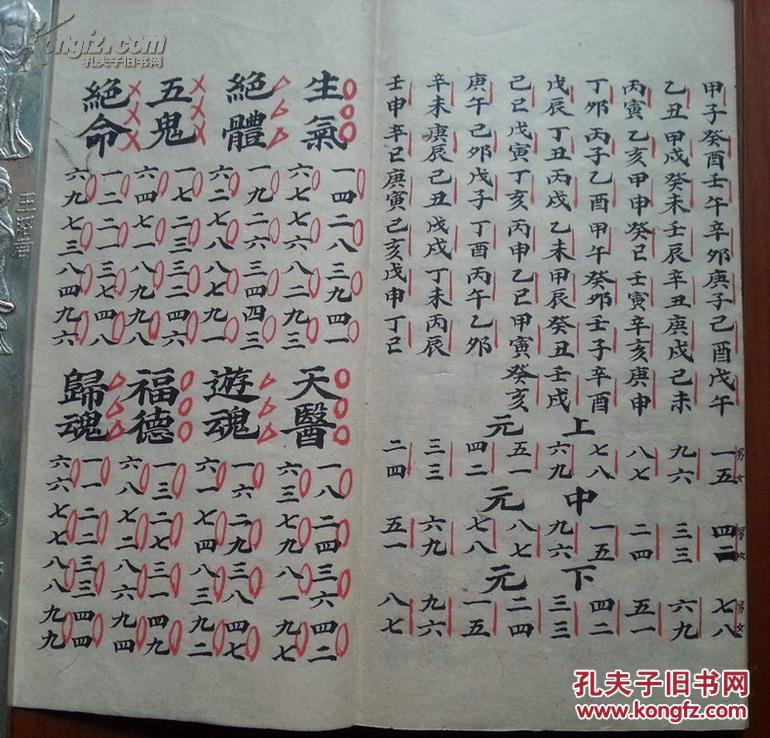 甲子癸酉壬午辛卯庚子己酉戊午
乙丑甲戌癸未壬辰辛丑庚戌己未
丙寅乙亥甲申癸巳壬寅辛亥庚申
丁卯丙子乙酉甲午癸卯壬子辛酉
戊辰丁丑丙戌乙未甲辰癸丑壬戌
己巳戊寅丁亥丙申乙巳甲寅癸亥
庚午己卯戊子丁酉丙午乙卯
辛未庚辰己丑戊戌丁未丙辰
壬申辛巳庚寅己亥戊申丁巳
上元
男女 一五 九六 八七 七八 六九 五一 四二 三三 二四
中元
男女 四二 三三 二四 一五 九六 八七 七八 六九 五一
下元
男女 七八 六九 五一 四二 三三 二四 一五 九六 八七
生氣
一四 二八 三九 四一
六七 七六 八二 九三
絕體
一九 二六 三四 四三
六二 七八 八七 九一
五鬼
一七 二三 三二 四六
六四 七一 八九 九八
絕命
一二 二一 三七 四八
六九 七三 八四 九六
天醫
一八 二四 三六 四二
六三 七九 八一 九七
遊魂
一六 二九 三八 四七
六一 七四 八三 九二
福德
一三 二七 三一 四九
六八 七二 八六 九四
歸魂
一一 二二 三三 四四
六六 七七 八八 九九
kongfz.com
孔夫子旧书网
孔夫子旧书网
www.kongfz.com